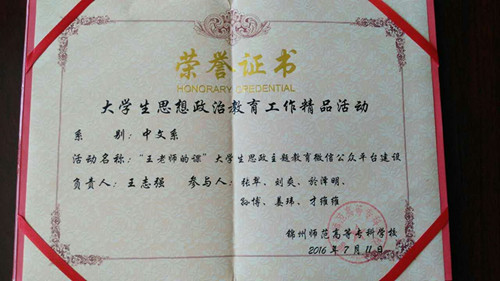 荣誉证书
HONORARY CREDENTIAL
大学生思想政治教育工作精品活动
系 别：中文系
活动名称：“王老师的课”大学生思政主题教育微信公众平台建设
负责人：王志强 参与人：张苹、刘爽、於泽明、
孙博、姜玮、才雅雅
锦州师范高等专科学校
2016年7月11日